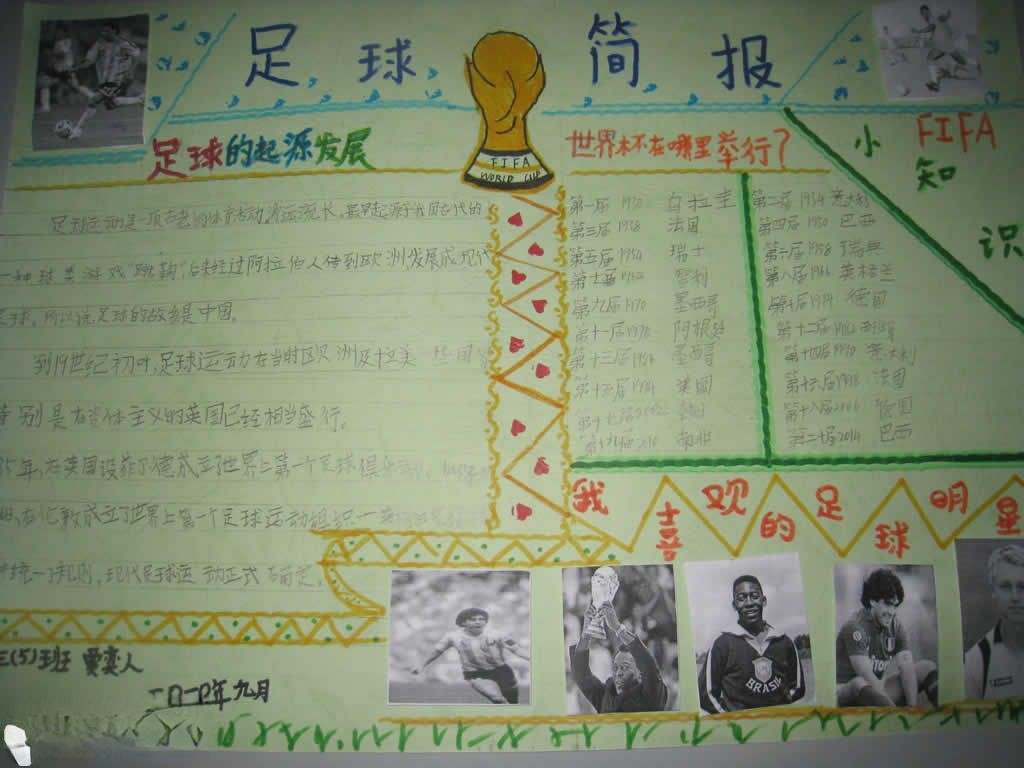 足球简报
足球的起源发展
足球运动是一项古老的体育活动,源远流长,最早起源于我国古代的
一种球类游戏"蹴鞠"后来经过阿拉伯人传到欧洲发展成现代
足球。所以说足球的故乡是中国。
到19世纪初叶,足球运动在当时欧洲及拉美
特别是在资本主义的英国已经相当盛行。
年,在英国设菲尔德成立了世界上第一个足球俱乐部
在伦敦成立了世界上第一个足球运动组织一
统一规则,现代足球运动正式确定。
三(5)班
二〇一〇年九月
FIFA
WORLD CUP
世界杯在哪里举行?
第一届 1930 乌拉圭
第三届 1938 法国
第五届 1954 瑞士
第七届 1962 智利
第九届 1970 墨西哥
第十一届 1978 阿根廷
第十三届 1986 墨西哥
第十五届 1994 美国
第十七届 2002 韩国
第十九届 2010 南非
第二届 1934 意大利
第四届 1950 巴西
第六届 1958 瑞典
第八届 1966 英格兰
第十届 1974 德国
第十二届 1982
第十四届 1990 意大利
第十六届 1998 法国
第十八届 2006 德国
第二十届 2014 巴西
FIFA
小知识
我喜欢的足球明星
BRASIL